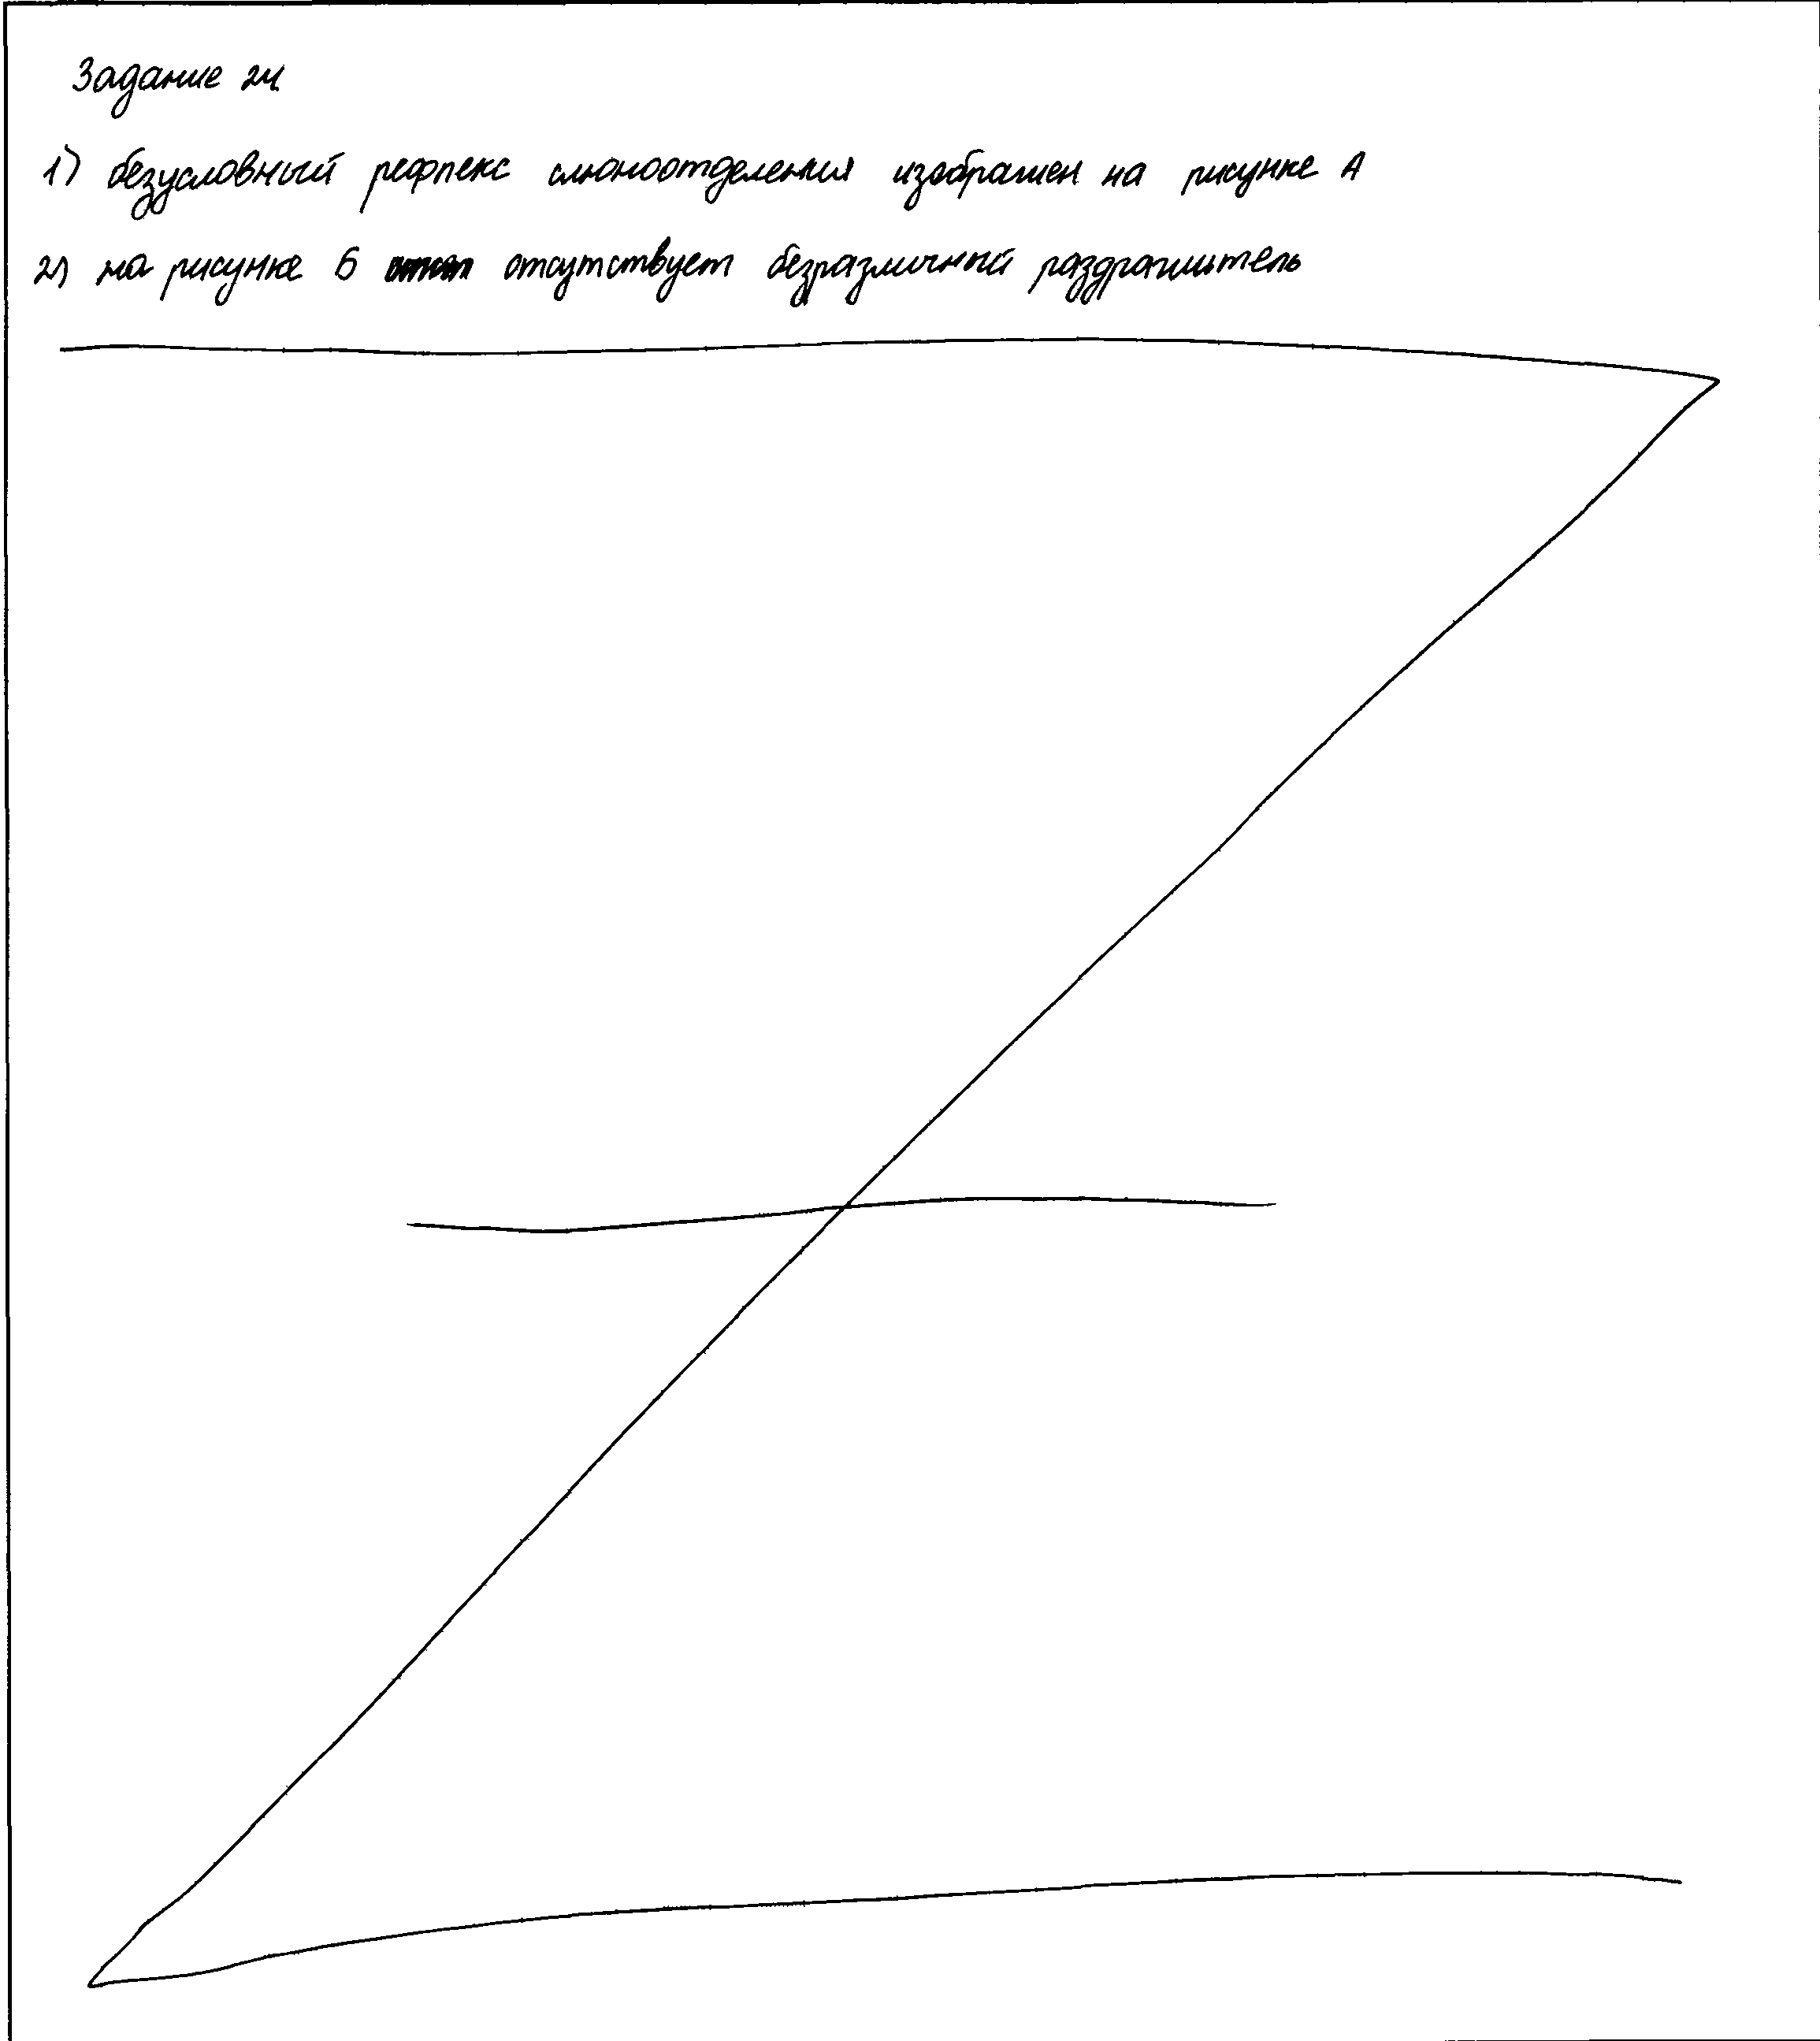 Задание 24
1) безусловный рефлекс слюноотделения изображен на рисунке А
2) на рисунке Б отсутствует безразличный раздражитель